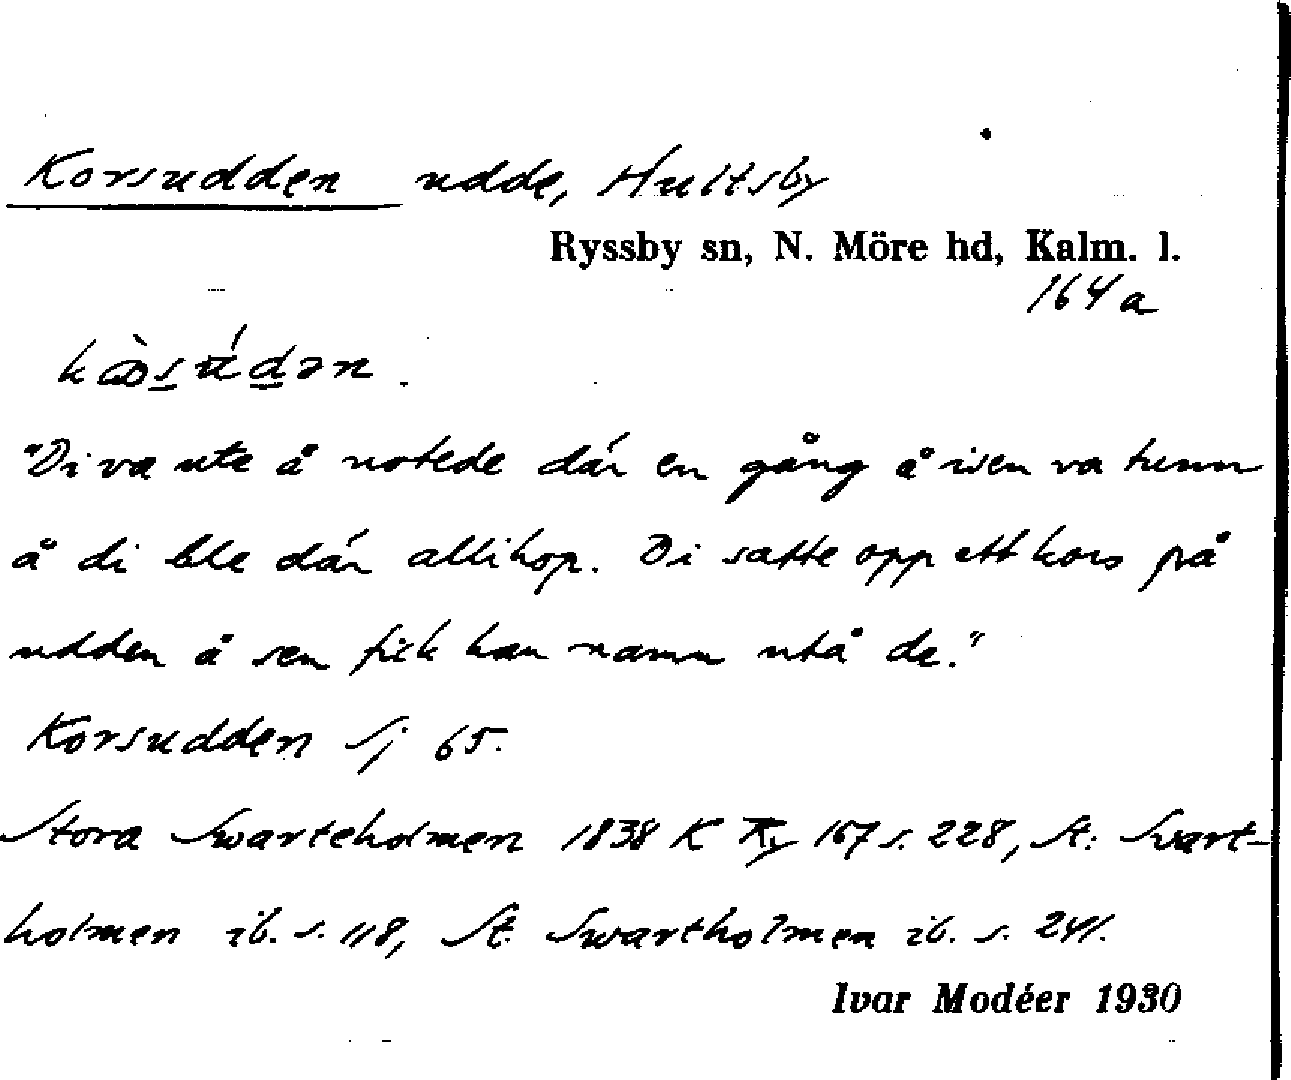 Korsudden udde, Hultsby
Ryssby sn, N. Möre hd, Kalm. l.
164a
"Di va ute å notede där en gång å isen va tunn
å di ble där allihop. Di satte opp ett kors på
udden å sen fick han namn utå de."
Korsudden Sj 65.
Stora Swarteholmen 1838 K Ry 167 s. 228, St. Svart-
holmen ib. s. 118, St. Swartholmen ib. s. 241.
Ivar Modéer 1930